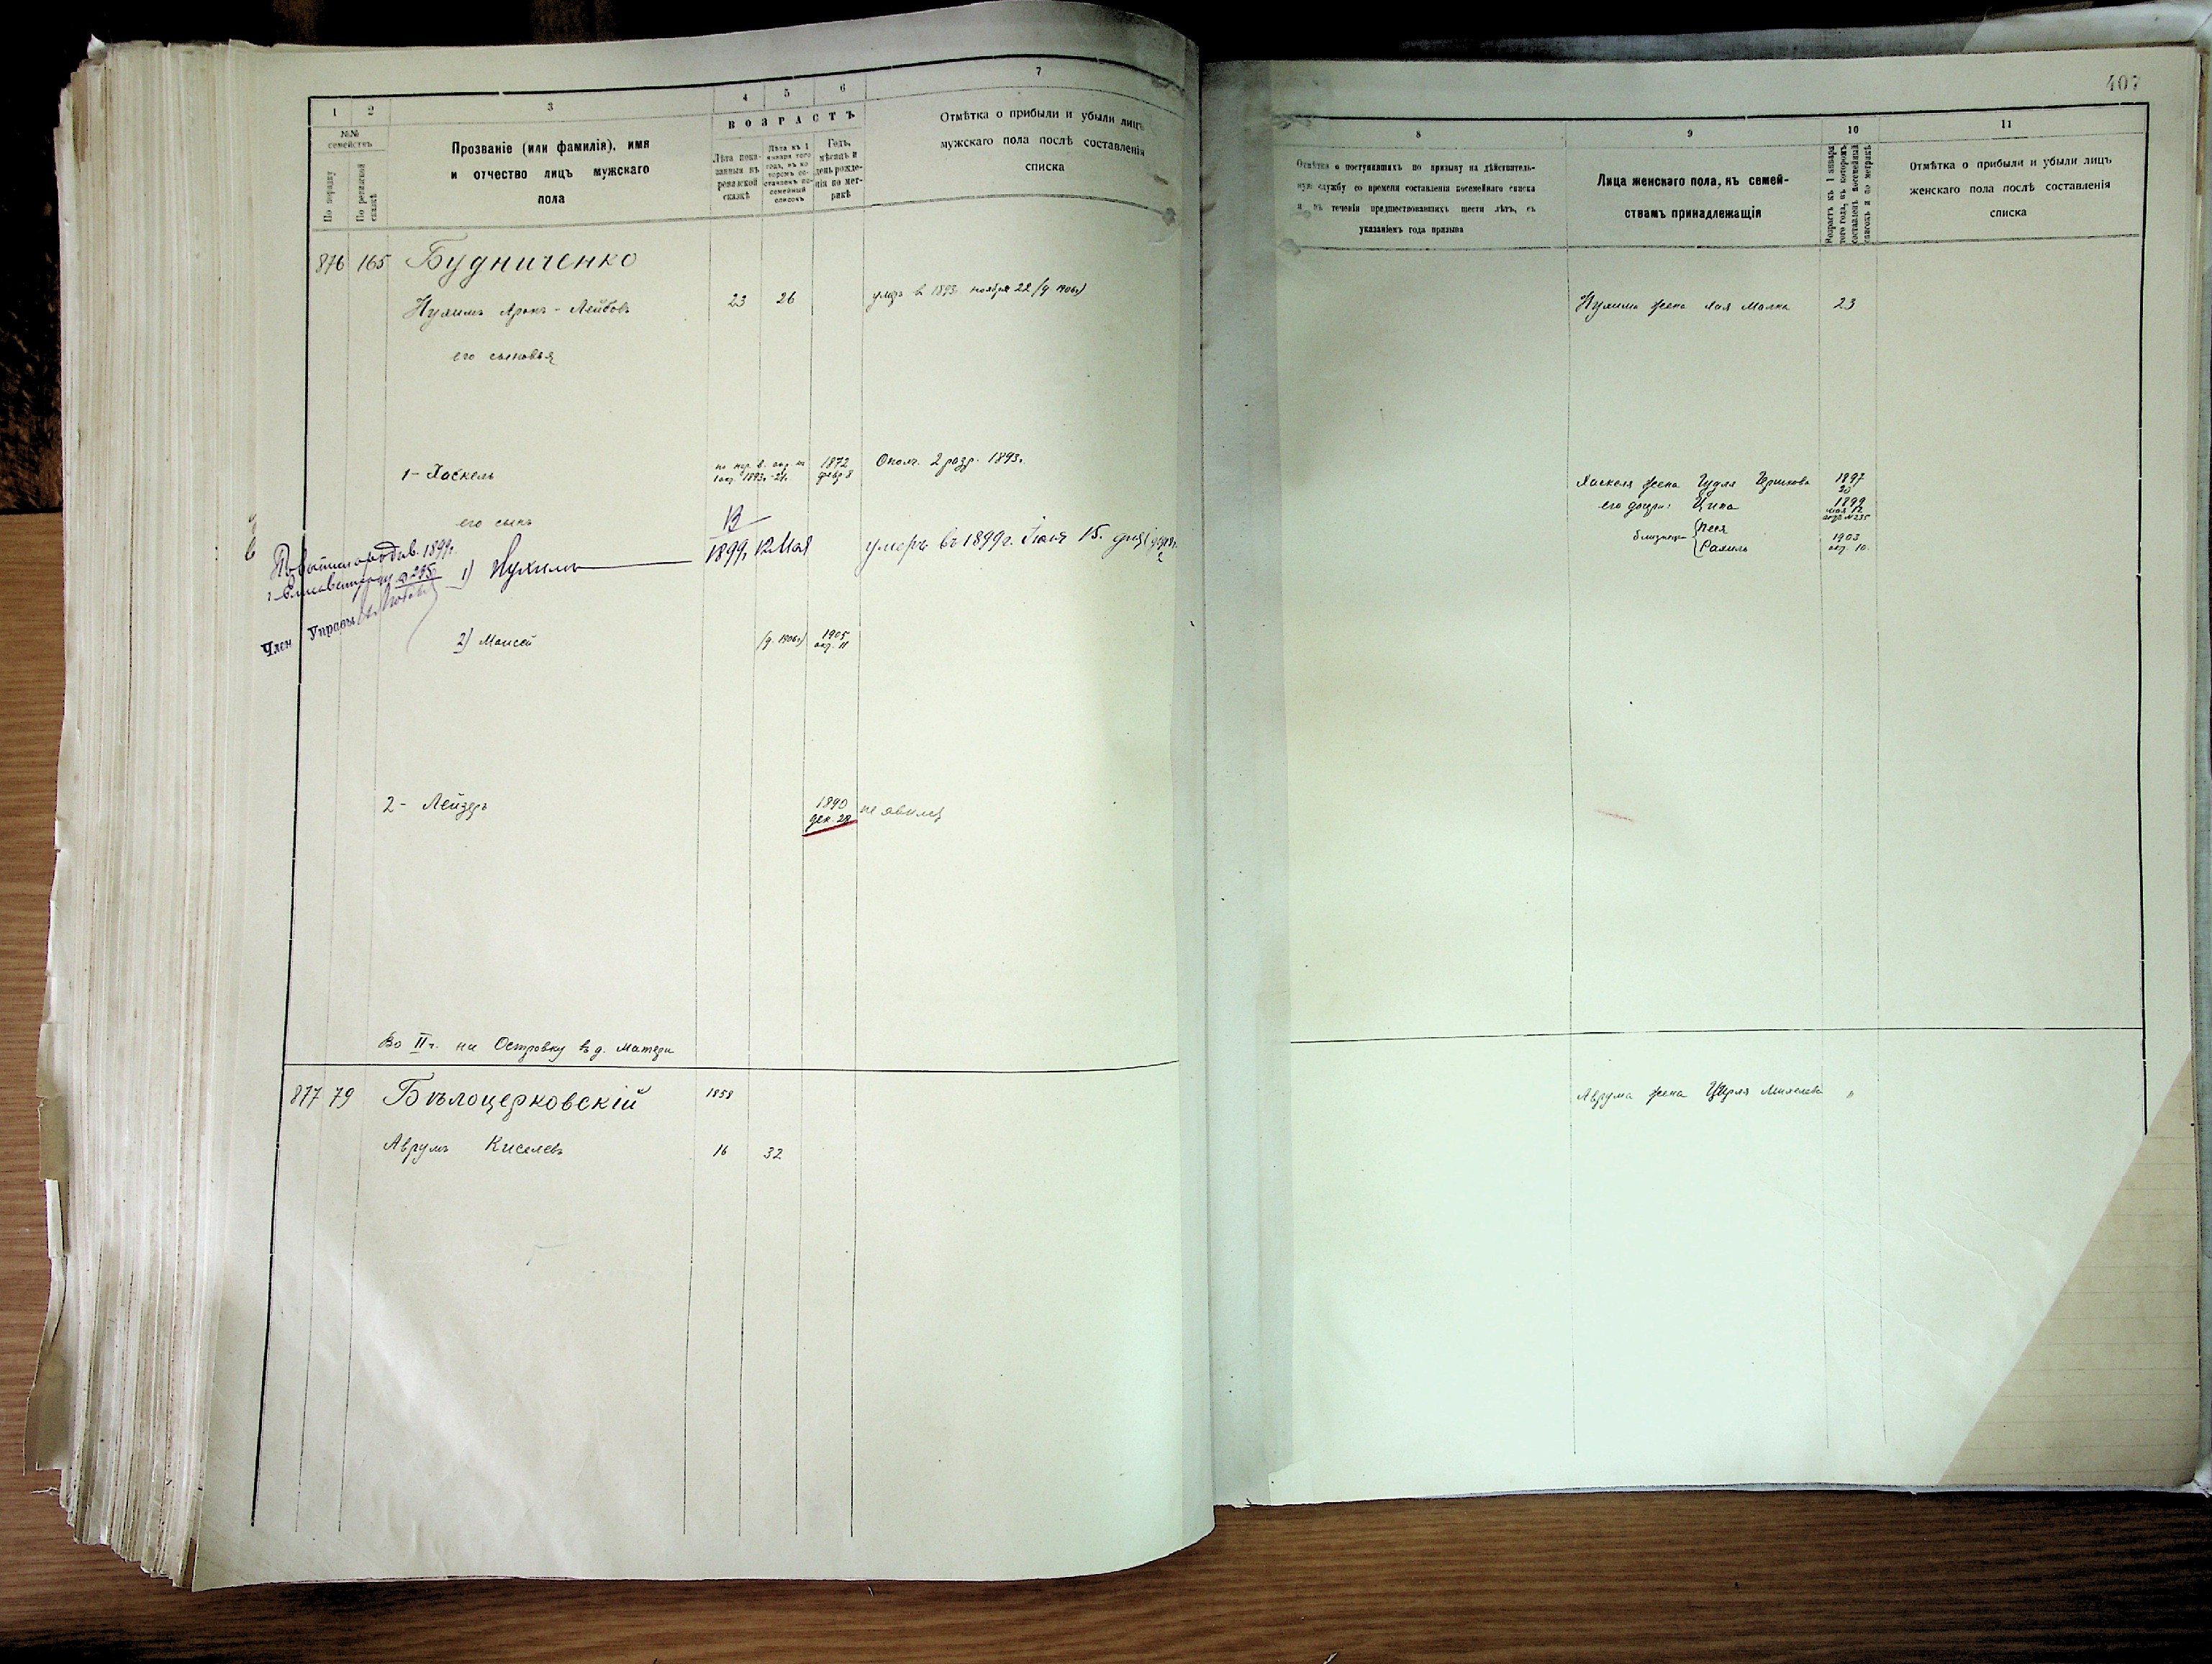 407
1 2 3 4 5 6 7
№№ семействъ
По порядку
По ревизской сказкѣ
Прозваніе (или фамилія), имя
и отчество лицъ мужскаго
пола
ВОЗРАСТЪ
Лѣта пока-
занныя въ
ревизской
сказкѣ
Лѣта къ 1
января того
года, въ ко-
торомъ со-
ставленъ по-
семейный
списокъ
Годъ,
мѣсяцъ и
день рожде-
нія по мет-
рикѣ
Отмѣтка о прибыли и убыли лицъ
мужскаго пола послѣ составленія
списка
8 9 10 11
Отмѣтка о поступившихъ по призыву на дѣйствитель-
ную службу со времени составленія посемейнаго списка
и въ теченіи предшествовавшихъ шести лѣтъ, съ
указаніемъ года призыва
Лица женскаго пола, къ семей-
ствамъ принадлежащія
Возрастъ къ 1 января
того года, въ которомъ
составленъ посемейный
списокъ и по метрикѣ
Отмѣтка о прибыли и убыли лицъ
женскаго пола послѣ составленія
списка
876 165 Будниченко
Нухимъ Аронъ-Лейбовъ 23 26 умеръ в 1893 ноября 22 (д. 1906г)
Нухима жена Хая Малка 23
его сыновья
1- Хаскель 1893г. 21. 1872 февр 8 Ополч. 2 разр. 1893г.
Хаскеля жена Гудля Гершкова 1897
20
его дочери: Ципа 1899
мая 12
близнецы Песя
Рахиль 1903
окт. 10.
его сынъ
1899г.
1) Нухимъ 1899г. 12 Мая умеръ въ 1899г. Іюля 15. дня
Член Управы
2) Моисей (д. 1906г) 1905
окт. 11
2- Лейзеръ 1890
дек. 28 не явился
Во II ч. на Островку въ д. Матери
877 79 Бѣлоцерковскій 1858
Аврумъ Киселевъ 16 32
Аврума жена Церля "